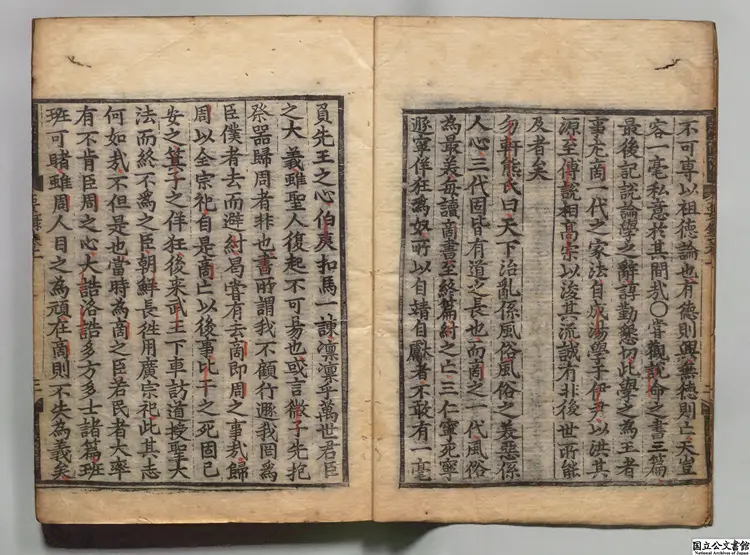 不可專以祖德論也有德則興無德則亡天豈
容一毫私意於其間哉○嘗觀說命之書三篇
最後記說論學之辭諄勤懇切此學之為王者
事尤商一代之家法自成湯學于伊尹以洪其
源至傅說相高宗以浚其流誠有非後世所能
及者矣
勿軒熊氏曰天下治亂係風俗風俗之美惡係
人心三代固皆有道之長也而商之一代風俗
為最美每讀商書至終篇紂之亡三仁寧死寧
遯寧佯狂為奴所以自靖自獻者不敢有一毫
負先王之心伯夷扣馬一諫凛凛乎萬世君臣
之大義雖聖人復起不可易也或言微子先抱
祭器歸周者非也書所謂我不顧行遯我罔為
臣僕者去而避紂曷嘗有去商即周之事哉歸
周以全宗祀自是商亡以後事比干之死固已
安之箕子之佯狂後来武王下車訪道授聖大
法而終不為之臣朝鮮長徃用廣宗祀此其志
何如哉不但是也當時為商之臣若民者大率
有不肯臣周之心大誥洛誥多方多士諸篇班
班可睹雖周人目之為頑在商則不失為義矣
国立公文書館
National Archives of Japan